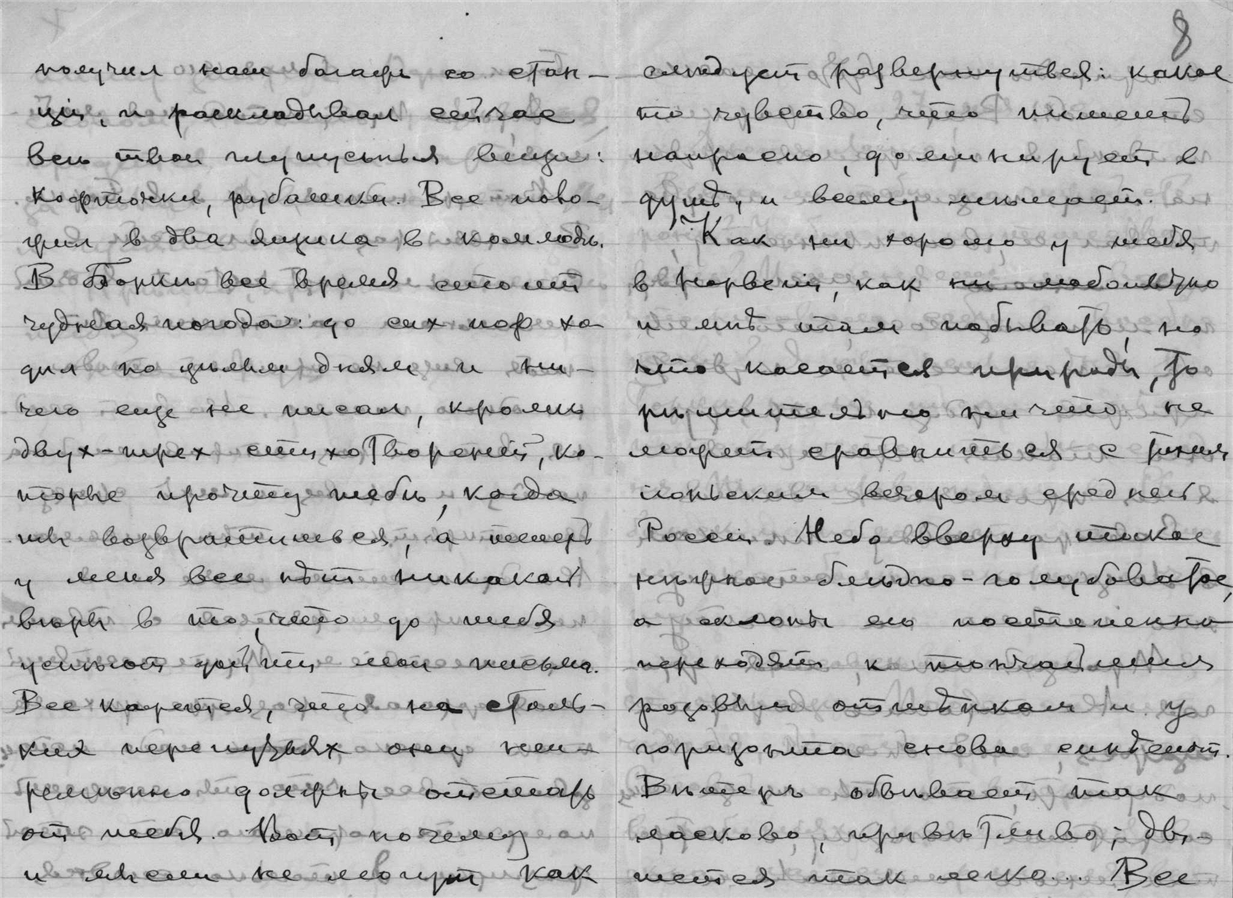 получил наш багаж со стан-
ціи, и раскладывал сейчас
всѣ твои вещи:
кофточки, рубашки. Все поло-
жил в два ящика в комодѣ.
В все время стоит
чудная погода: до сих пор хо-
дил по цѣлым дням и ни-
чего еще не писал, кромѣ
двух-трех стихотвореній, ко-
торые прочту тебѣ, когда
ты возвратишься, а теперь
у меня все нѣт никакой
вѣры в то, что до тебя
успѣют дойти мои письма.
Все кажется, что на столь-
ких они неп-
ремѣнно должны отстать
от тебя. Вот почему
и мысли не могут как
8
слѣдует развернуться: какое
то чувство, что пишешь
напрасно, доминирует в
душѣ, и всему мѣшает.
Как ни хорошо у тебя
в Норвегіи, как ни любопытно
и мнѣ там побывать, но
что касается природы, то
рѣшительно ничто не
может сравниться с тихим
іюньским вечером средней
Россіи. Небо вверху такое
нѣжное блѣдно-голубоватое,
а склоны его постепенно
переходят к тончайшим
розовым оттѣнкам и у
горизонта снова синѣют.
Вѣтер обвѣвает так
ласково, привѣтливо; ды-
шется так легко... Все